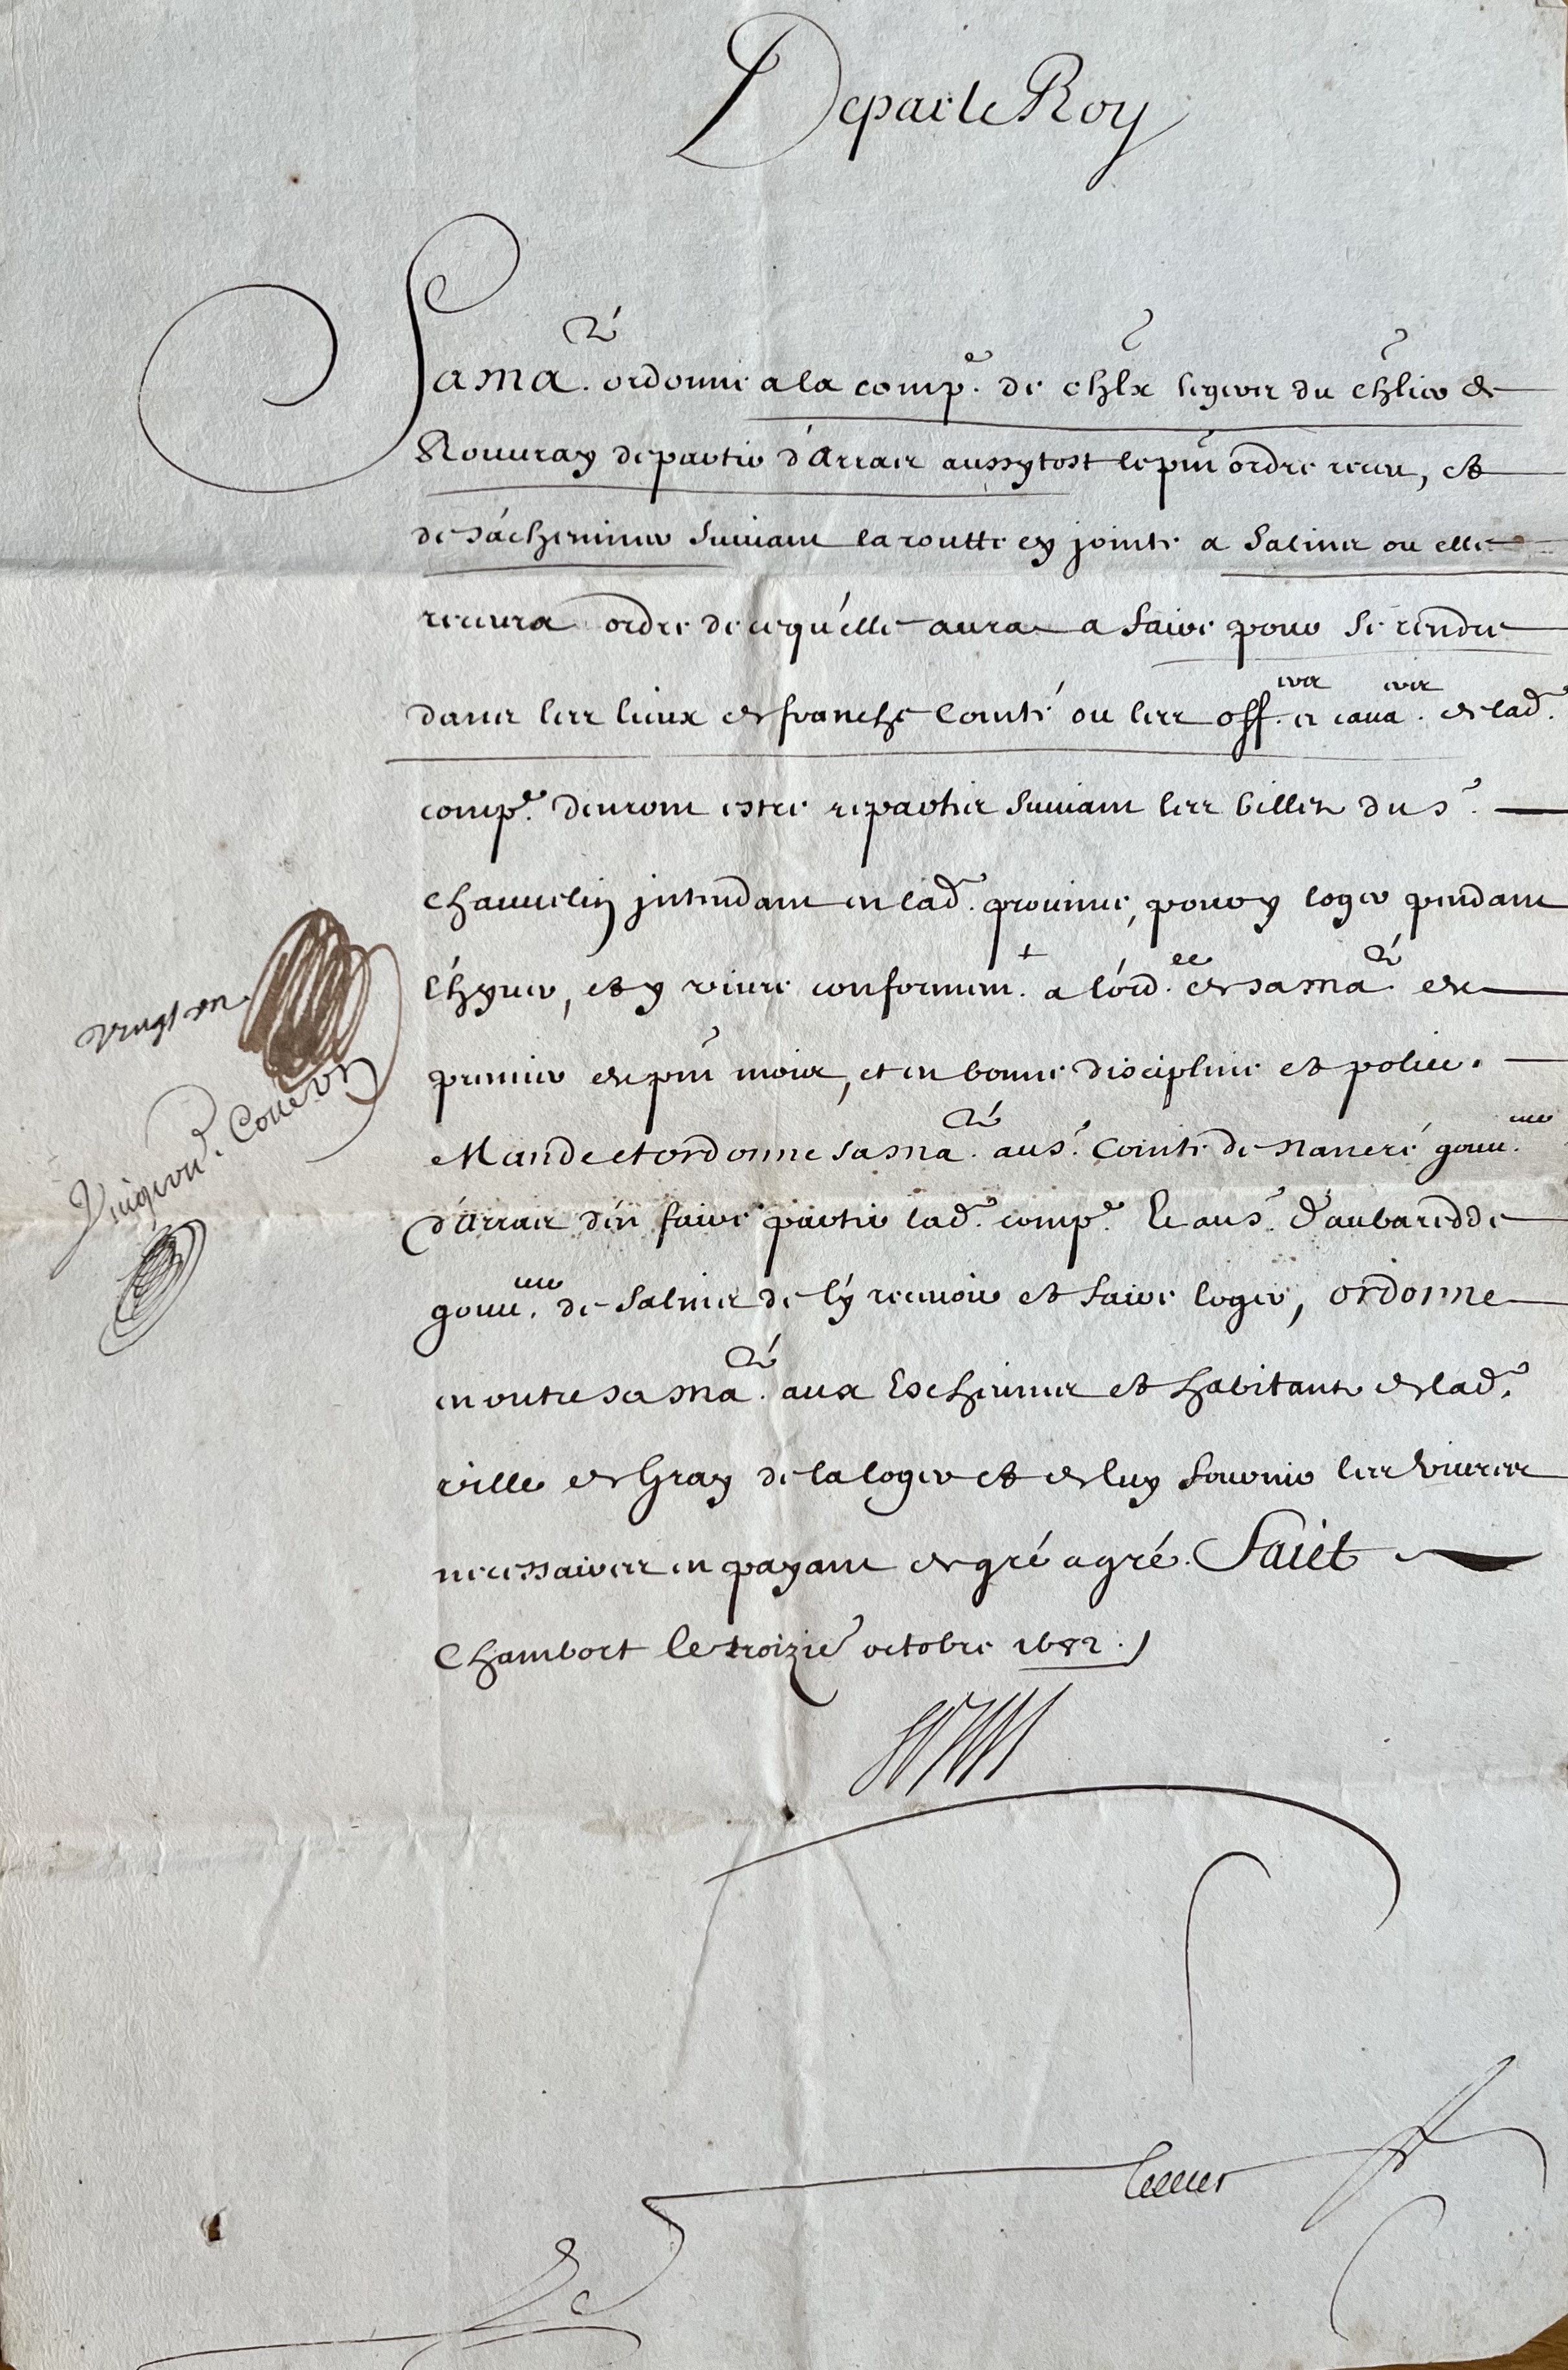 De par le Roy
Sa Ma.té ordonne a la comp.e de chlx legers du chlier de
Rouuray de partir d'Arras aussytost le pnt ordre receu, et
de s'acheminer suiuant la routte cy jointe a Salines ou elle
receura ordre de ce qu'elle aura a faire pour se rendre
dans les lieux de franche Comté ou les off.iers et caua.iers de lad.
comp.e deuront estre repartis suiuant les billets du s.r
Chauuelin jntendant en lad. prouince, pour y loger pendant
l'hyuer, et y viure conformem.t a l'ord.ce de sa Ma.té du
premier du pnt mois, et en bonne discipline et police.
Mande et ordonne sa Ma.té au s.r Comte de Nancré gouu.eur
d'Arras d'en faire partir lad. comp.e Et au s.r d'aubaredde
gouu.eur de Salines de l'y receuoir et faire loger, ordonne
en outre sa Ma.té aux Escheuins et habitants de lad.
ville de Gray de la loger et de luy fournir les viures
necessaires en payant de gré a gré. Faict a
Chambort le troizie octobre 1682.
vingt un